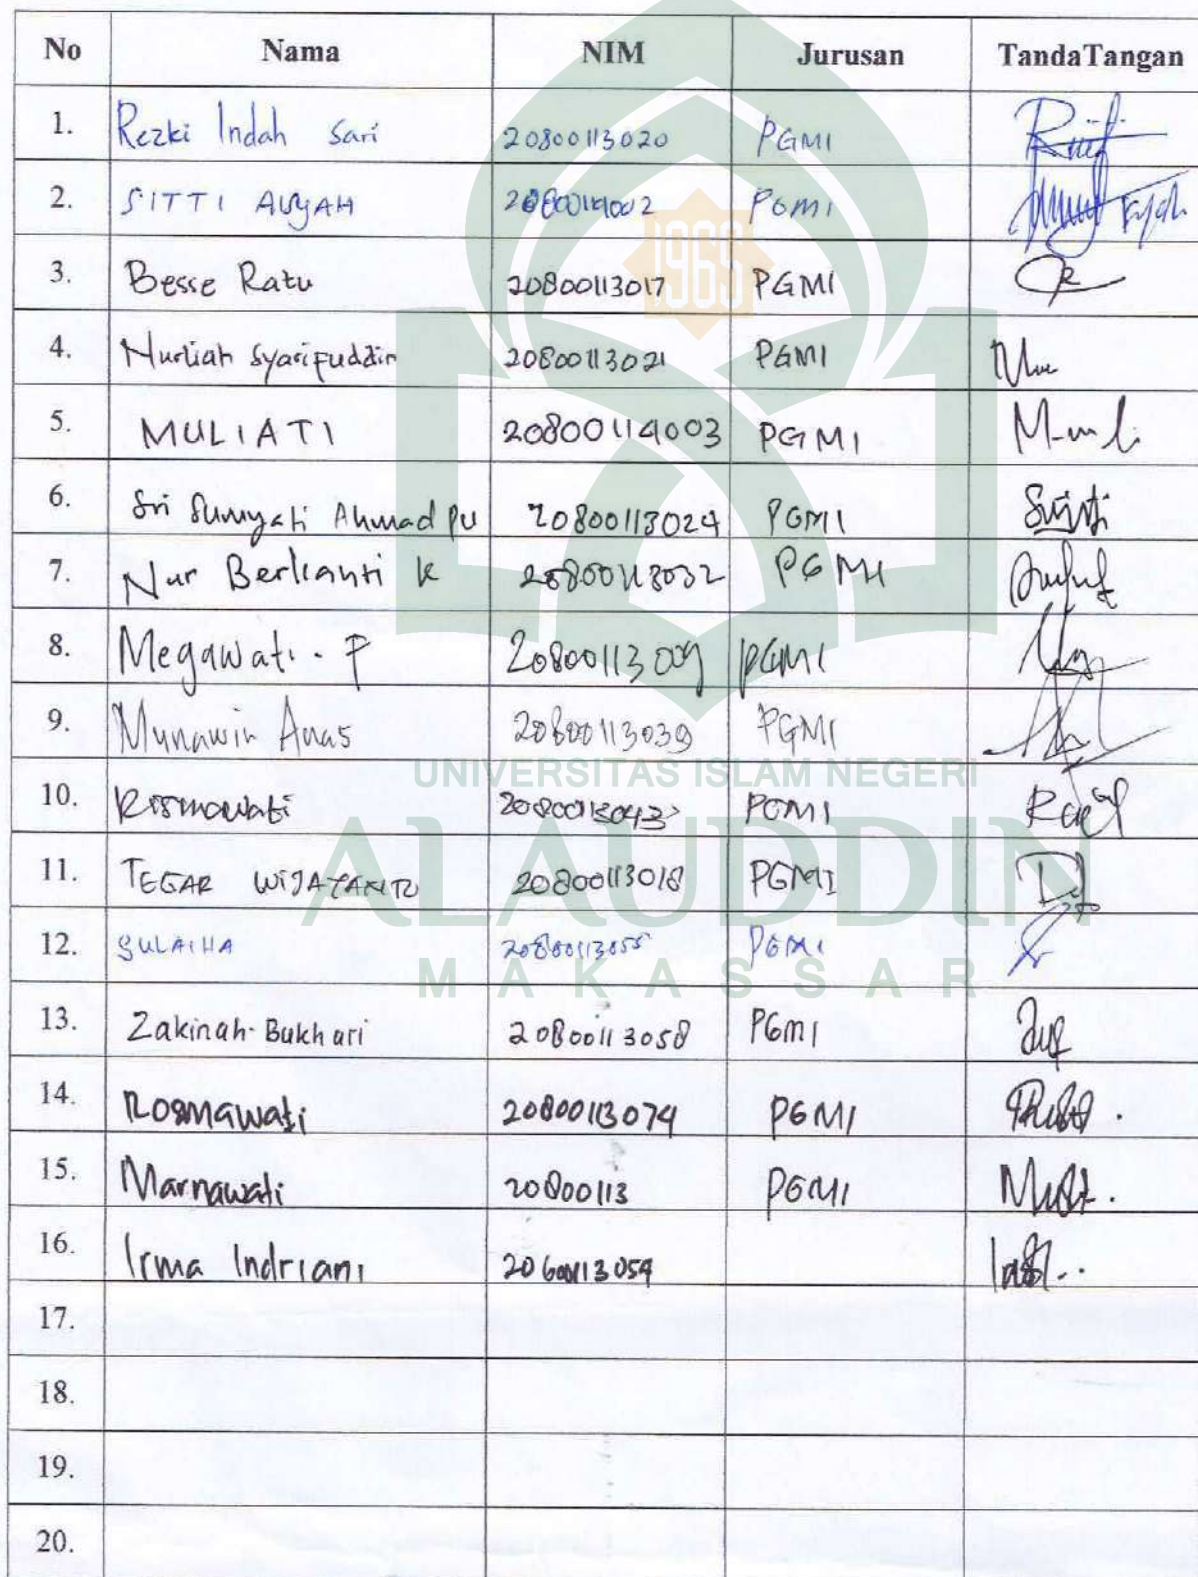 No Nama NIM Jurusan TandaTangan
1. Rezki Indah Sari 20800113020 PGMI
2. SITTI ALIYAH 20800114002 PGMI
3. Besse Ratu 20800113017 PGMI
4. Nurliah Syarifuddin 20800113021 PGMI
5. MULIATI 20800114003 PGMI
6. Sri Sumyati Ahmad pu 20800113024 PGMI
7. Nur Berlianti K 20800113032 PGMI
8. Megawati. P 20800113009 PGMI
9. Munawir Anas 20800113039 PGMI
UNIVERSITAS ISLAM NEGERI
10. Rismawati 20800113043 PGMI
ALAUDDIN
11. TEGAR WIJAYANTO 20800113018 PGMI
12. SULAIHA 20800113055 PGMI
MAKASSAR
13. Zakinah Bukhari 20800113058 PGMI
14. Rosmawati 20800113074 PGMI
15. Marnawati 20800113 PGMI
16. Irma Indriani 20600113054
17.
18.
19.
20.
1965